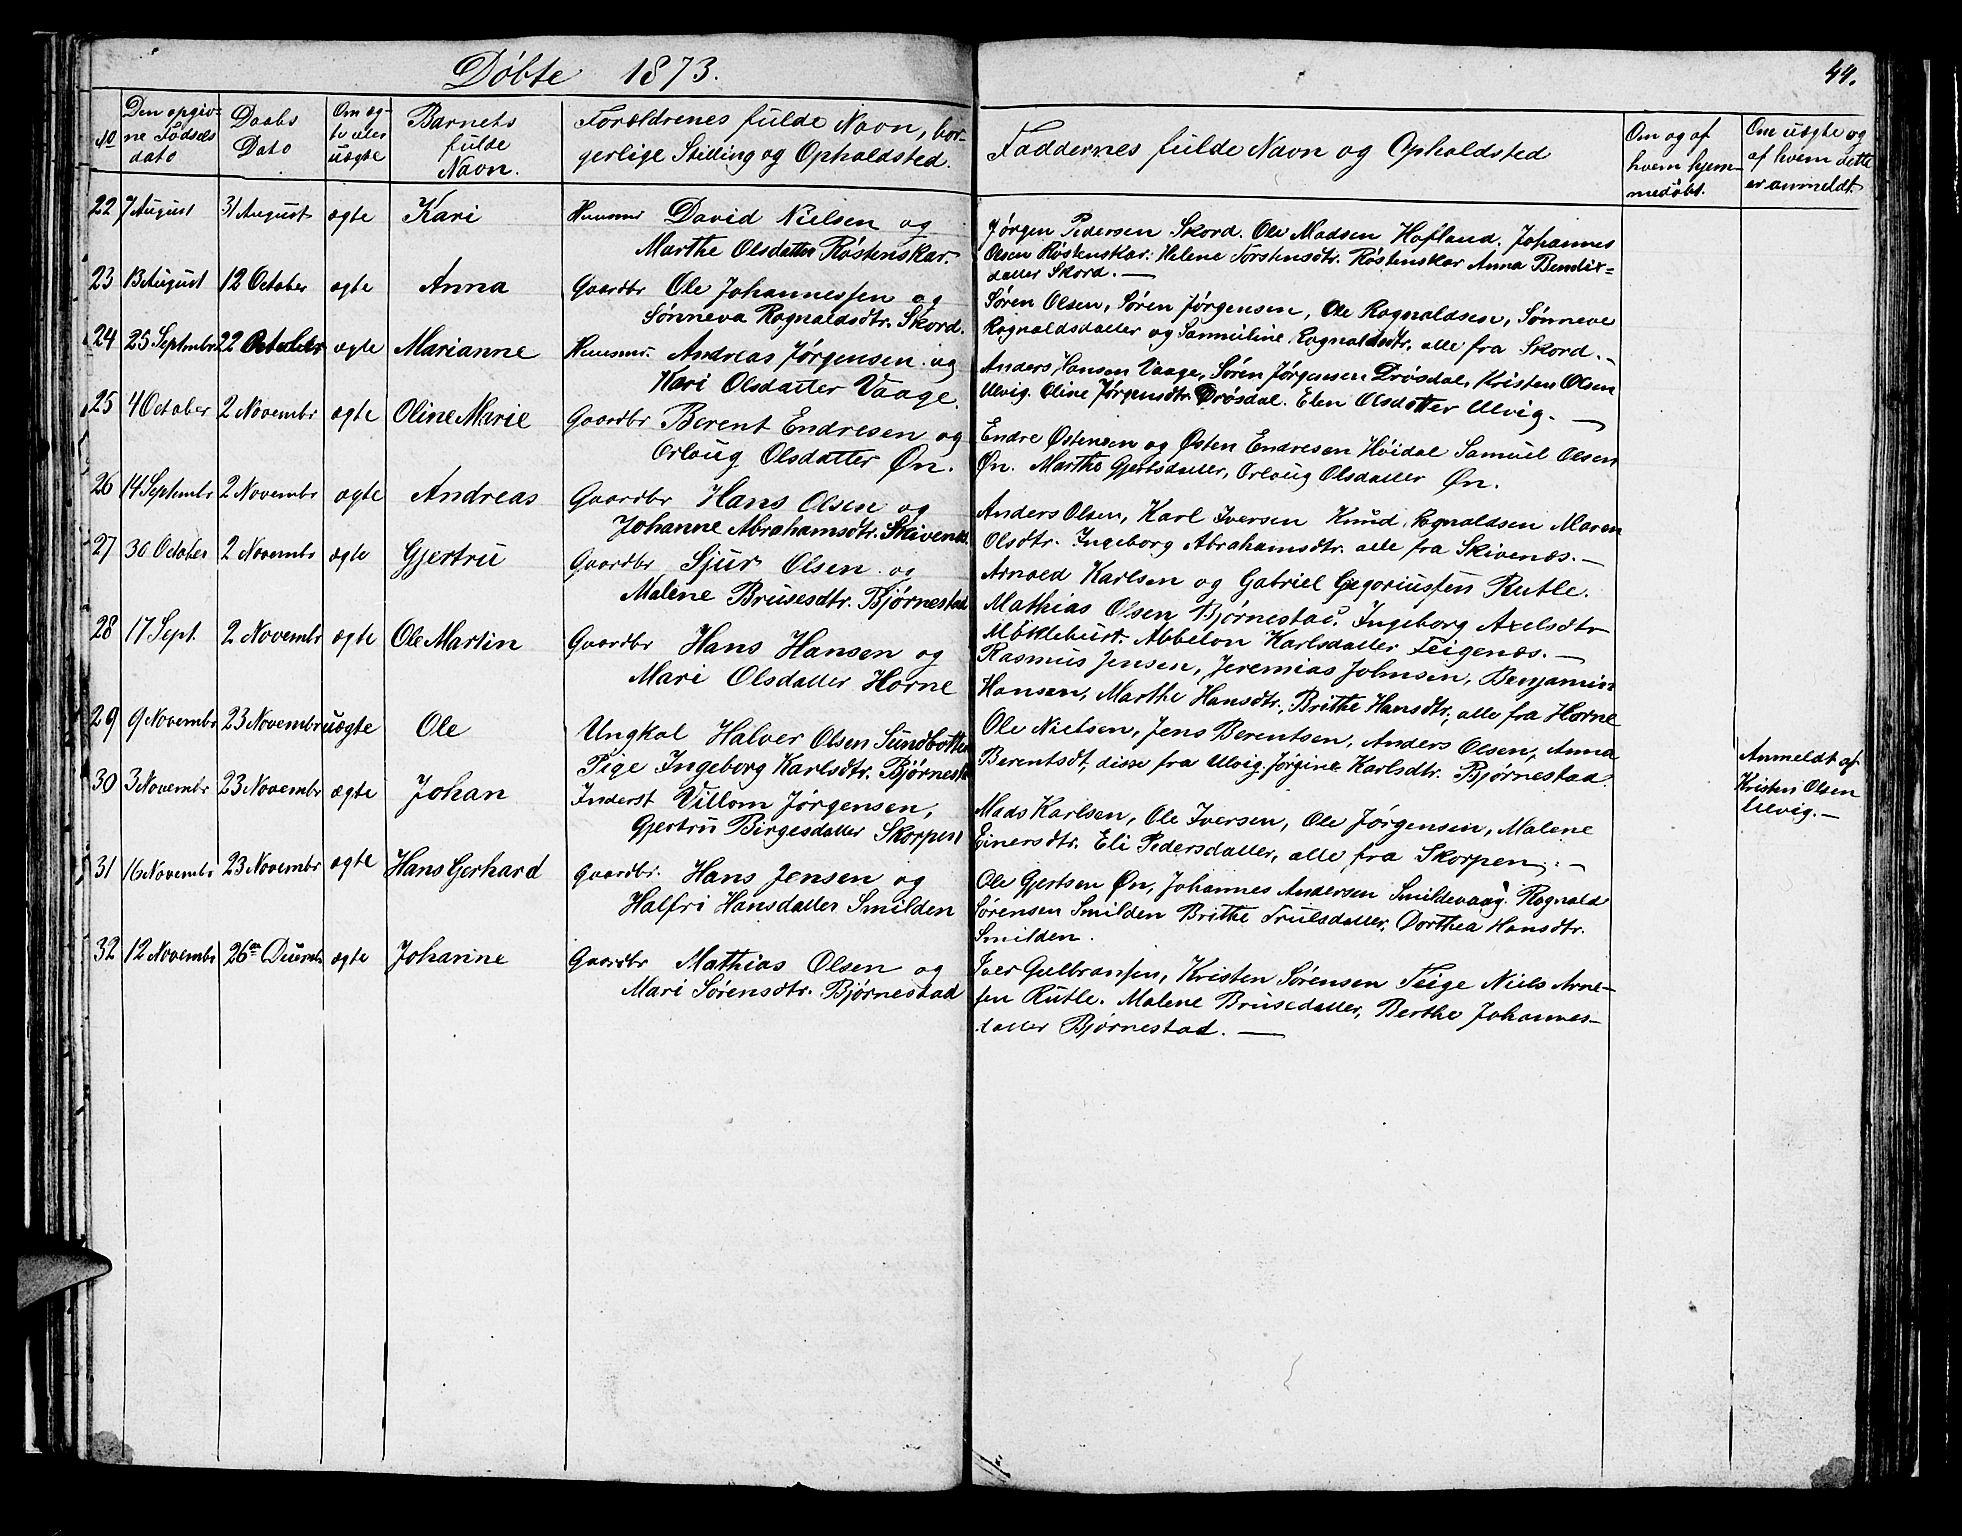 Døbte 1873.
44.
No
Den opgiv-
ne Fødsels
dato
Daabs
Dato
Om æg-
te eller
uægte
Barnets
fulde
Navn.
Forældrenes fulde Navn, bor-
gerlige Stilling og Opholdsted.
Faddernes fulde Navn og Opholdsted
Om og af
hvem hjem-
medøbt.
Om uægte og
af hvem dette
er anmeldt.
22 7 August 31 August ægte Kari Huusmr David Nielsen og
Marthe Olsdatter Røstenskar.
Jørgen Pedersen Skord. Ole Madsen Hofland. Johannes
Olsen Røstenskar. Helene Torstensdtr. Røstenskar Anna Bendix-
datter Skord. —
23 13 August 12 October ægte Anna Gaardbr Ole Johannessen og
Sønneva Rognaldsdtr. Skord.
Søren Olsen, Søren Jørgensen, Ole Rognaldsen, Sønneve
Rognaldsdatter og Samueline Rognaldsdtr. alle fra Skord. –
24 25 Septembr 22 October ægte Marianne Huusmr. Andreas Jørgensen og
Kari Olsdatter Vaage.
Anders Hansen Vaage, Søren Jørgensen Drøsdal, Kristen Olsen
Ulvig. Oline Jørgensdtr. Drøsdal. Elen Olsdatter Ulvig. —
25 4 October 2 Novembr ægte Oline Marie Gaardbr Berent Endresen og
Orloug Olsdatter Øn.
Endre Østensen og Østen Endresen Høidal Samuel Olsen
Øn. Marthe Gjertsdatter, Orloug Olsdatter Øn.
26 14 Septembr 2 Novembr ægte Andreas Gaardbr Hans Olsen og
Johanne Abrahamsdtr. Skivenæs
Anders Olsen, Karl Iversen Knud Rognaldsen Maren
Olsdtr. Ingeborg Abrahamsdtr. alle fra Skivenæs. —
27 30 October 2 Novembr ægte Gjertru Gaardbr Sjur Olsen og
Malene Brusesdtr. Bjørnestad
Arnold Karlsen og Gabriel Gegoriussen Rutle.
Mathias Olsen Bjørnestad. Ingeborg Axelsdtr
Møklebust. Abbelon Karlsdatter Teigenæs. —
28 17 Sept. 2 Novembr ægte Ole Martin Gaardbr Hans Hansen og
Mari Olsdatter Horne
Rasmus Jensen, Jeremias Johnsen, Benjamin
Hansen, Marthe Hansdtr., Brithe Hansdtr, alle fra Horne
29 9 Novembr 23 Novembr uægte Ole Ungkal Halver Olsen Sundbotten
Pige Ingeborg Karlsdtr. Bjørnestad
Ole Nielsen, Jens Berentsen, Anders Olsen, Anna
Berentsdt, disse fra Ulvig. Jørgine Karlsdtr. Bjørnestad.
Anmeldt af
Kristen Olsen
Ulvig. —
30 3 Novembr 23 Novembr ægte Johan Inderst Villom Jørgensen,
Gjertru Birgesdatter Skorpen
Mads Karlsen, Ole Iversen, Ole Jørgensen, Malene
Einersdtr. Eli Pedersdatter, alle fra Skorpen. –
31 16 Novembr 23 Novembr ægte Hans Gerhard Gaardbr. Hans Jensen og
Halfri Hansdatter Smilden
Ole Gjertsen Øn, Johannes Andersen Smildevaag. Rognald
Sørensen Smilden Brithe Trulsdatter, Dorthea Hansdtr.
Smilden.
32 12 Novembr 26de Decemb ægte Johanne Gaardbr Mathias Olsen og
Mari Sørensdtr. Bjørnestad
Iver Gulbransen, Kristen Sørensen Teige Niels Arne-
sen Rutle. Malene Brusedatter, Berthe Johannes-
datter Bjørnestad. —